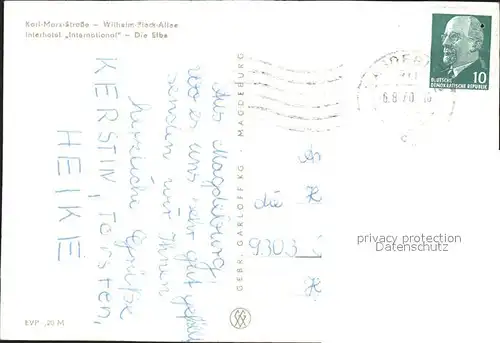 Karl-Marx-Straße – Wilhelm-Pieck-Allee
Interhotel „International“ – Die Elbe
Aus Magdeburg,
wo es uns sehr gut gefällt
senden wir Ihnen
herzliche Grüße
KERSTIN, TORSTEN,
HEIKE
GEBR. GARLOFF KG · MAGDEBURG
An
die
9303
H
10
DEUTSCHE
DEMOKRATISCHE REPUBLIK
privacy protection
Datenschutz
EVP -,20 M